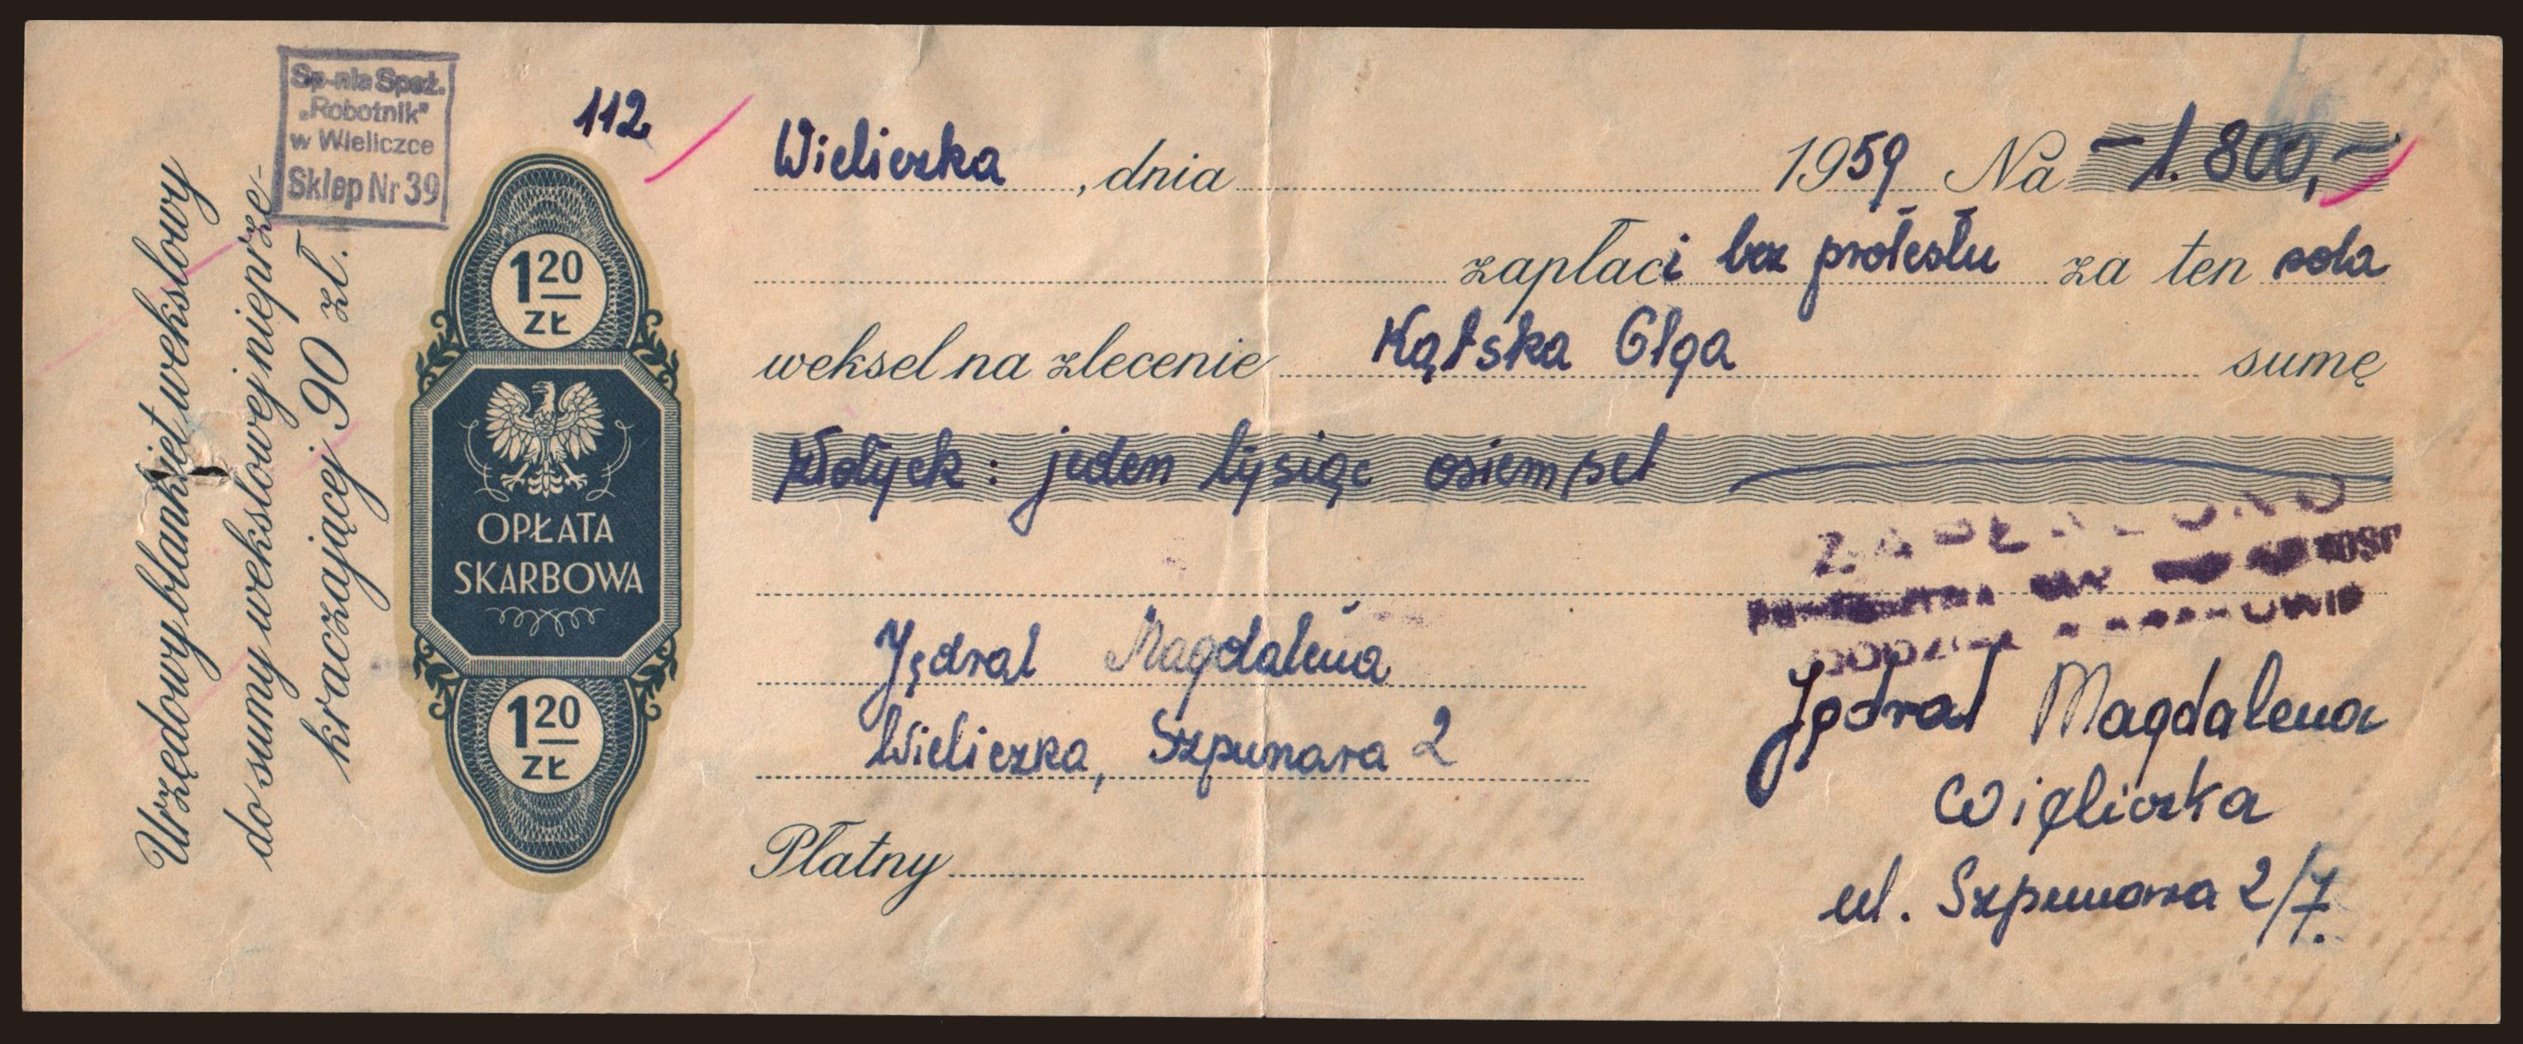 Sp-nia Spoż.
„Robotnik"
w Wieliczce
Sklep Nr 39
112
Urzędowy blankiet wekslowy
do sumy wekslowej nieprze-
kraczającej 90 zł.
1 20
ZŁ
OPŁATA
SKARBOWA
1 20
ZŁ
Wieliczka, dnia 1959 Na -1.800,-
zapłaci bez protestu za ten sola
weksel na zlecenie Kątska Olga sumę
złotych: jeden tysiąc osiemset
ZAPŁACONO
Jędral Magdalena
Wieliczka, Szpunara 2
Płatny
Jędrał Magdalena
Wieliczka
ul. Szpunara 2/7.